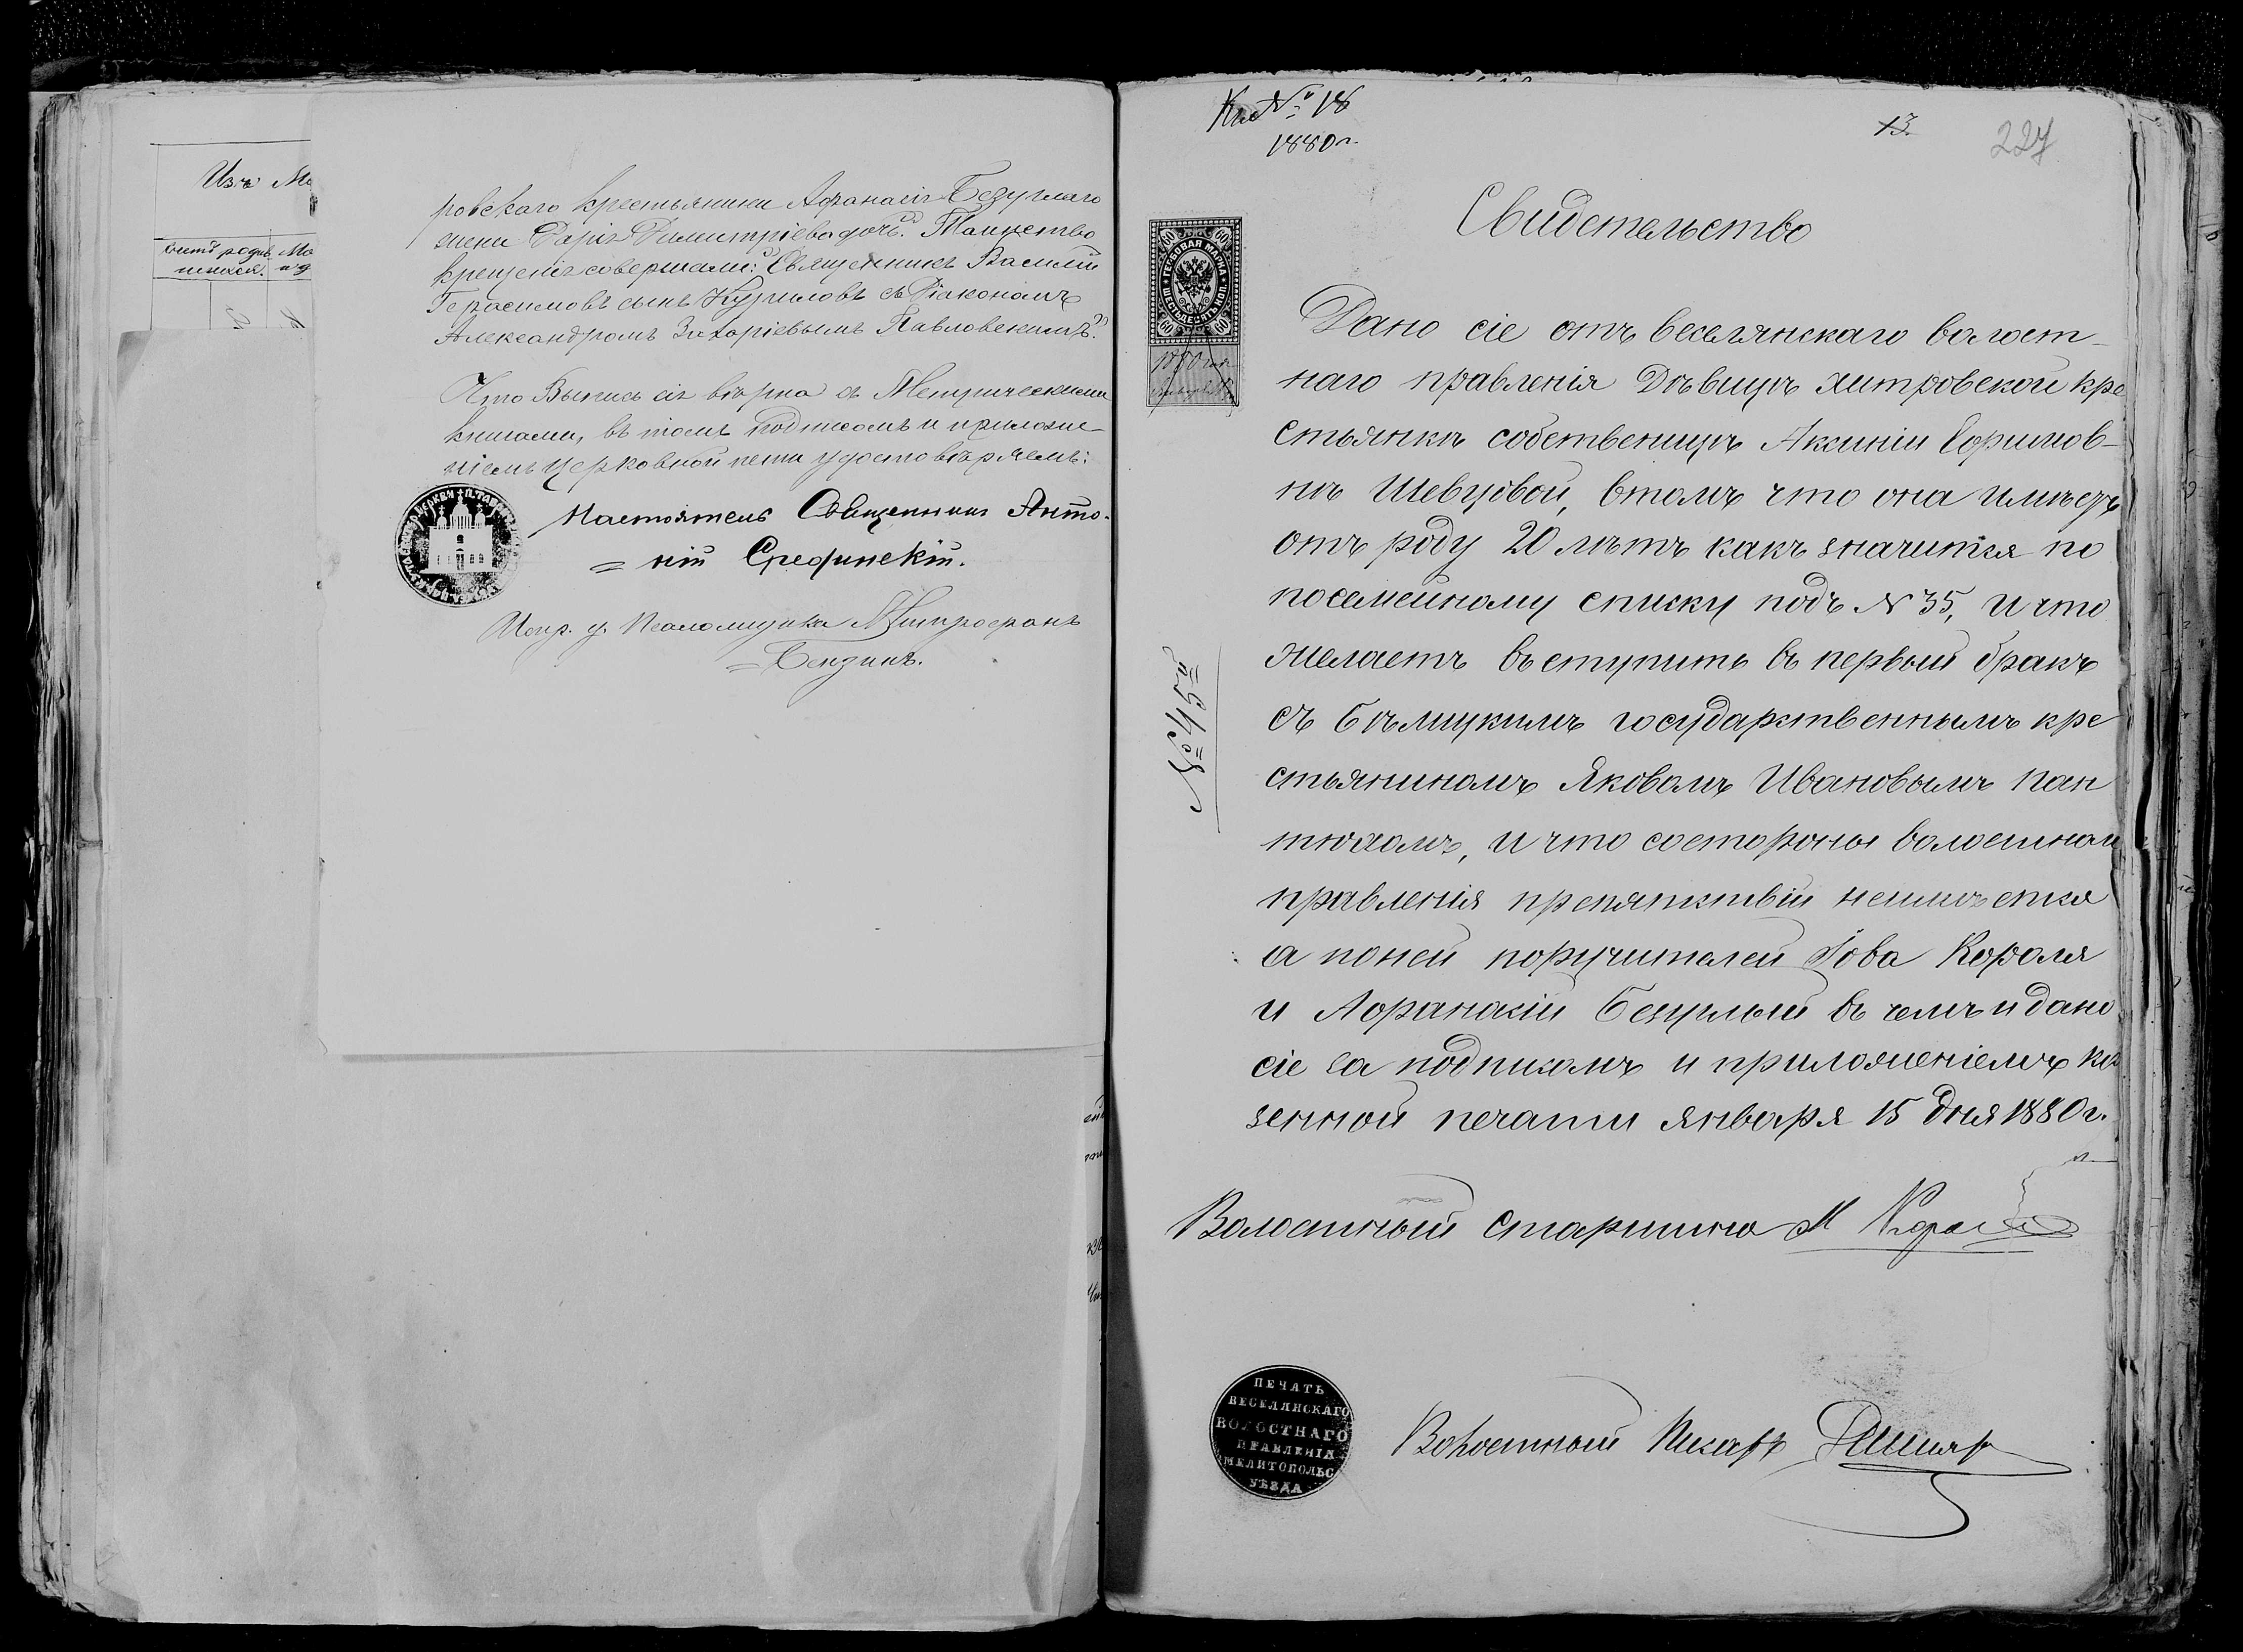 Изъ Ме
счетъ родив
шихся.
Ме
ровскаго крестьянина Афанасія Безуглаго
жена Дарія Димитріева дочь". Таинство
крещенія совершали: "Священникъ Василій
Герасимовъ сынъ Куриловъ съ Діакономъ
Александромъ Захаріевымъ Павловскимъ".
Что Выпись сія вѣрна съ Метрическими
книгами, въ томъ подписомъ и приложе-
ніемъ церковной печати удостовѣряемъ:
Настоятель Священникъ Анто-
= ній Срединскій.
Испр. д. Псаломщика Митрофанъ
= Бензинъ.
Къ № 18
1880 г.
13.
227
Свидетельство
60 60
ГЕРБОВАЯ МАРКА
ШЕСТЬДЕСЯТЪ КОП.
60 60
1880 года
Дано сіе отъ веселянскаго волост-
наго правленія Дѣвицѣ хитровской кре
стьянкѣ собственицѣ Аксиніи Ефимов-
нѣ Шевцовой, втомъ что она имѣетъ
отъ роду 20 лѣтъ какъ значится по
посемейному списку подъ № 35, и что
желаетъ въступить въ первый бракъ
съ Бѣлицкимъ государственнымъ кре
стьяниномъ Яковомъ Ивановымъ Пан
тюхомъ, и что состороны волостнаго
правленія препятствій неимѣется
а поней поручителей Іова Короля
и Афанасій Безуглый въ чемъ и дано
сіе за подписомъ и приложеніемъ ка
зенной печати января 15 дня 1880 г.
№ 45
Волостный старшина М Король
ПЕЧАТЬ
ВЕСЕЛЯНСКАГО
ВОЛОСТНАГО
ПРАВЛЕНІЯ
МЕЛИТОПОЛЬС
УѢЗДА
Волостный Писарь